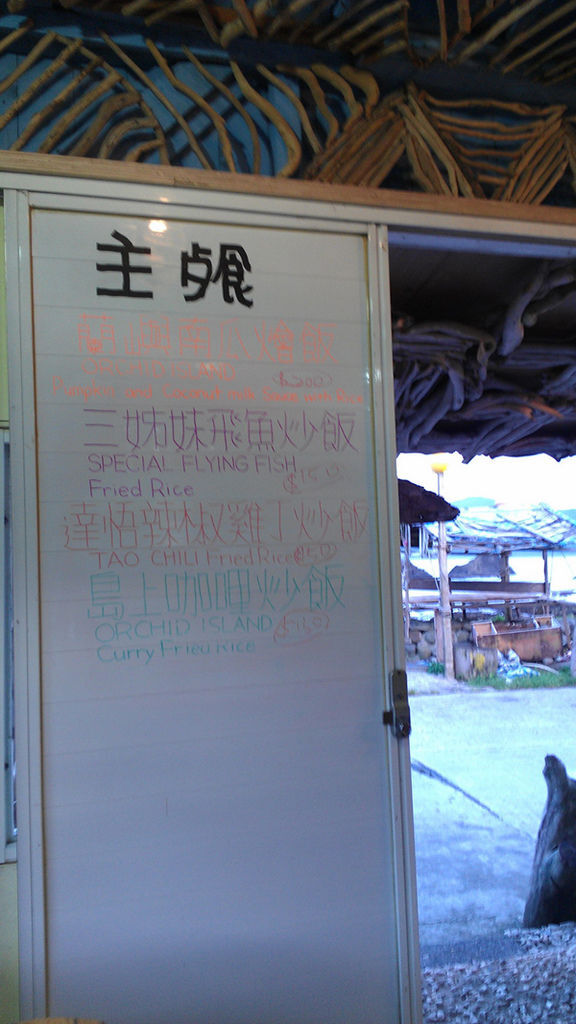 主餐
蘭嶼南瓜燴飯
ORCHID ISLAND $200
Pumpkin and Coconut milk with Rice
三姊妹飛魚炒飯
SPECIAL FLYING FISH $150
Fried Rice
達悟辣椒雞丁炒飯
TAO CHILI Fried Rice $150
島上咖哩炒飯
ORCHID ISLAND
Curry Fried Rice